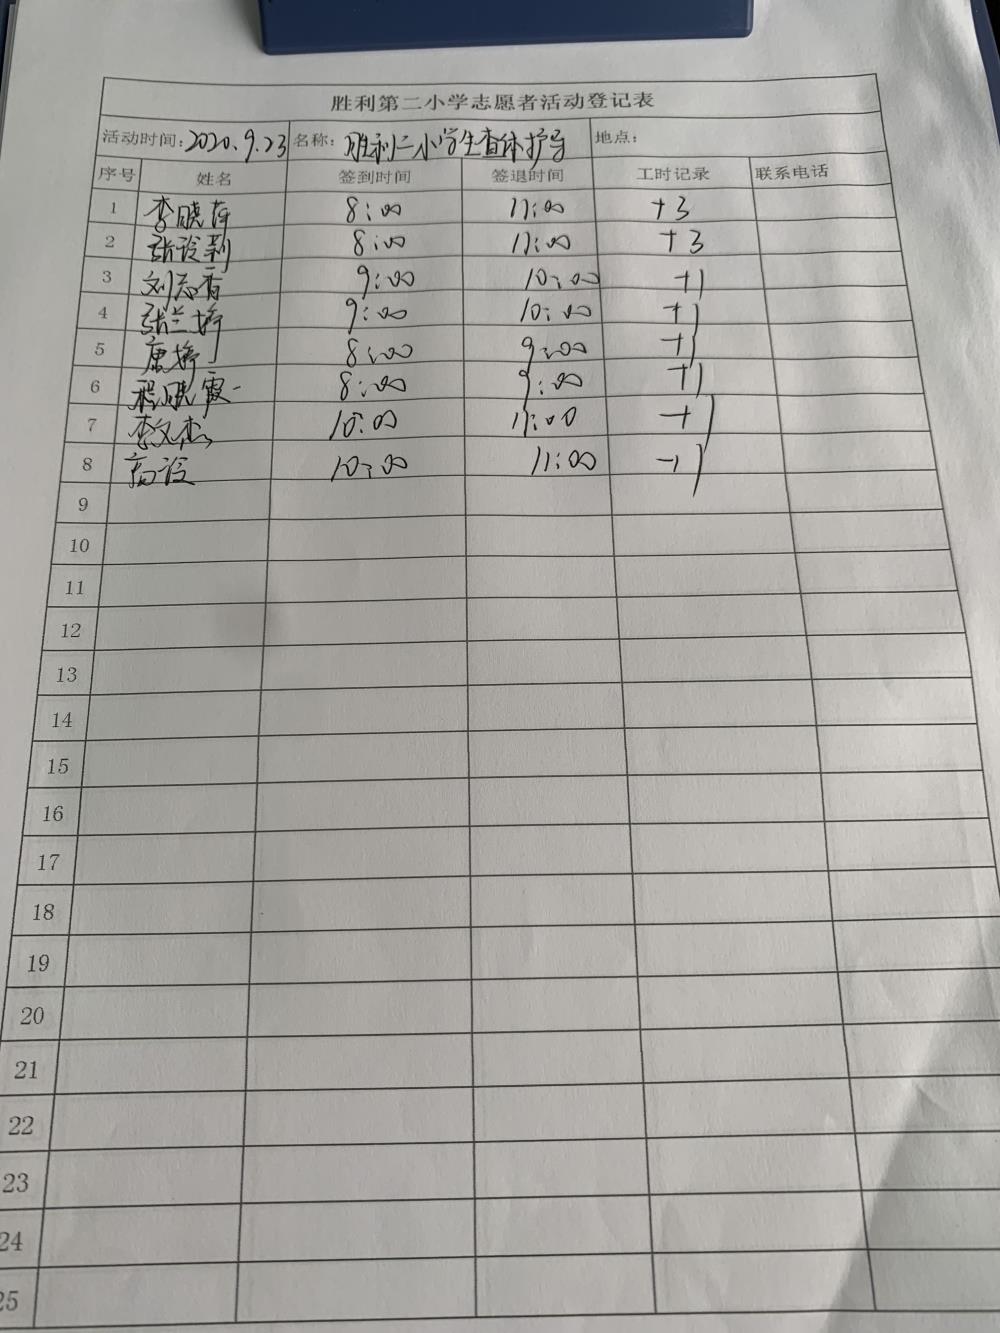 胜利第二小学志愿者活动登记表
活动时间:2020.9.23 名称:胜利二小学生查体护导 地点:
序号 姓名 签到时间 签退时间 工时记录 联系电话
1 李晓萍 8:00 11:00 +3
2 张 莉 8:00 11:00 +3
3 刘志香 9:00 10:00 +1
4 张兰婷 9:00 10:00 +1
5 唐婷 8:00 9:00 +1
6 程晓霞 8:00 9:00 +1
7 李文杰 10:00 11:00 +1
8 高 10:00 11:00 +1
9
10
11
12
13
14
15
16
17
18
19
20
21
22
23
24
25